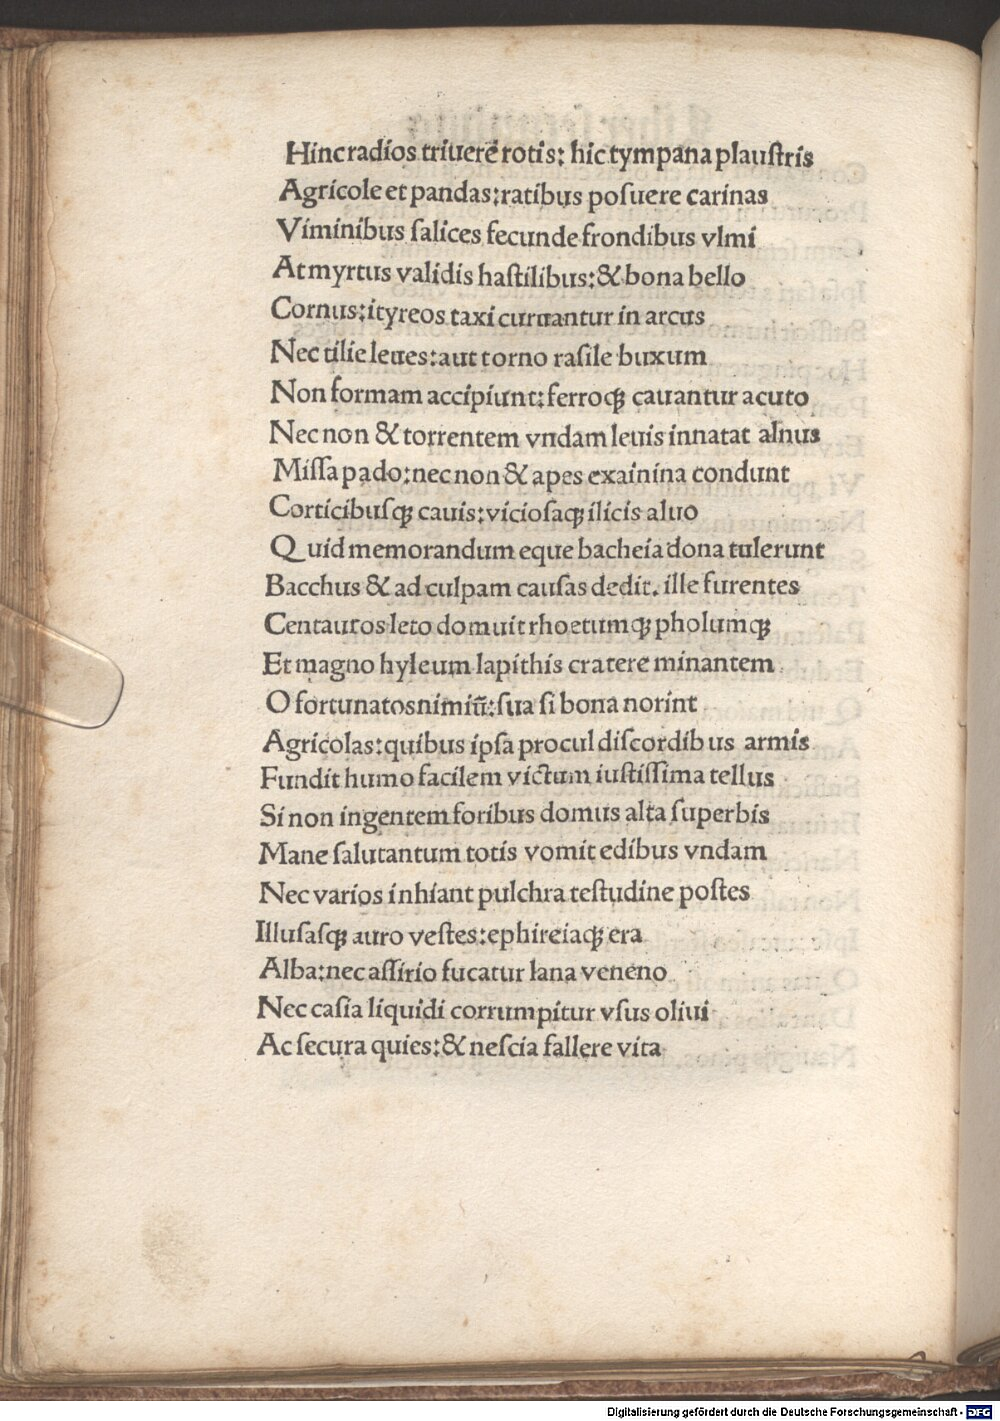 Hinc radios triuere rotis: hic tympana plauſtris
Agricole et pandas: ratibus poſuere carinas
Viminibus ſalices fecunde frondibus vlmi
At myrtus validis haſtilibus: & bona bello
Cornus: ityreos taxi curuantur in arcus
Nec tilie leues: aut torno raſile buxum
Non formam accipiunt: ferroqꝫ cauantur acuto
Nec non & torrentem vndam leuis innatat alnus
Miſſa pado: nec non & apes examina condunt
Corticibuſqꝫ cauis: vicioſaqꝫ ilicis aluo
Quid memorandum eque bacheia dona tulerunt
Bacchus & ad culpam cauſas dedit. ille furentes
Centauros leto domuit rhoetumqꝫ pholumqꝫ
Et magno hyleum lapithis cratere minantem
O fortunatos nimiū: ſua ſi bona norint
Agricolas: quibus ipſa procul diſcordibus armis
Fundit humo facilem victum iuſtiſſima tellus
Si non ingentem foribus domus alta ſuperbis
Mane ſalutantum totis vomit edibus vndam
Nec varios inhiant pulchra teſtudine poſtes
Illuſaſqꝫ auro veſtes: ephireiaqꝫ era
Alba: nec aſſirio fucatur lana veneno
Nec caſia liquidi corrumpitur vſus oliui
Ac ſecura quies: & neſcia fallere vita
Digitalisierung gefördert durch die Deutsche Forschungsgemeinschaft - DFG